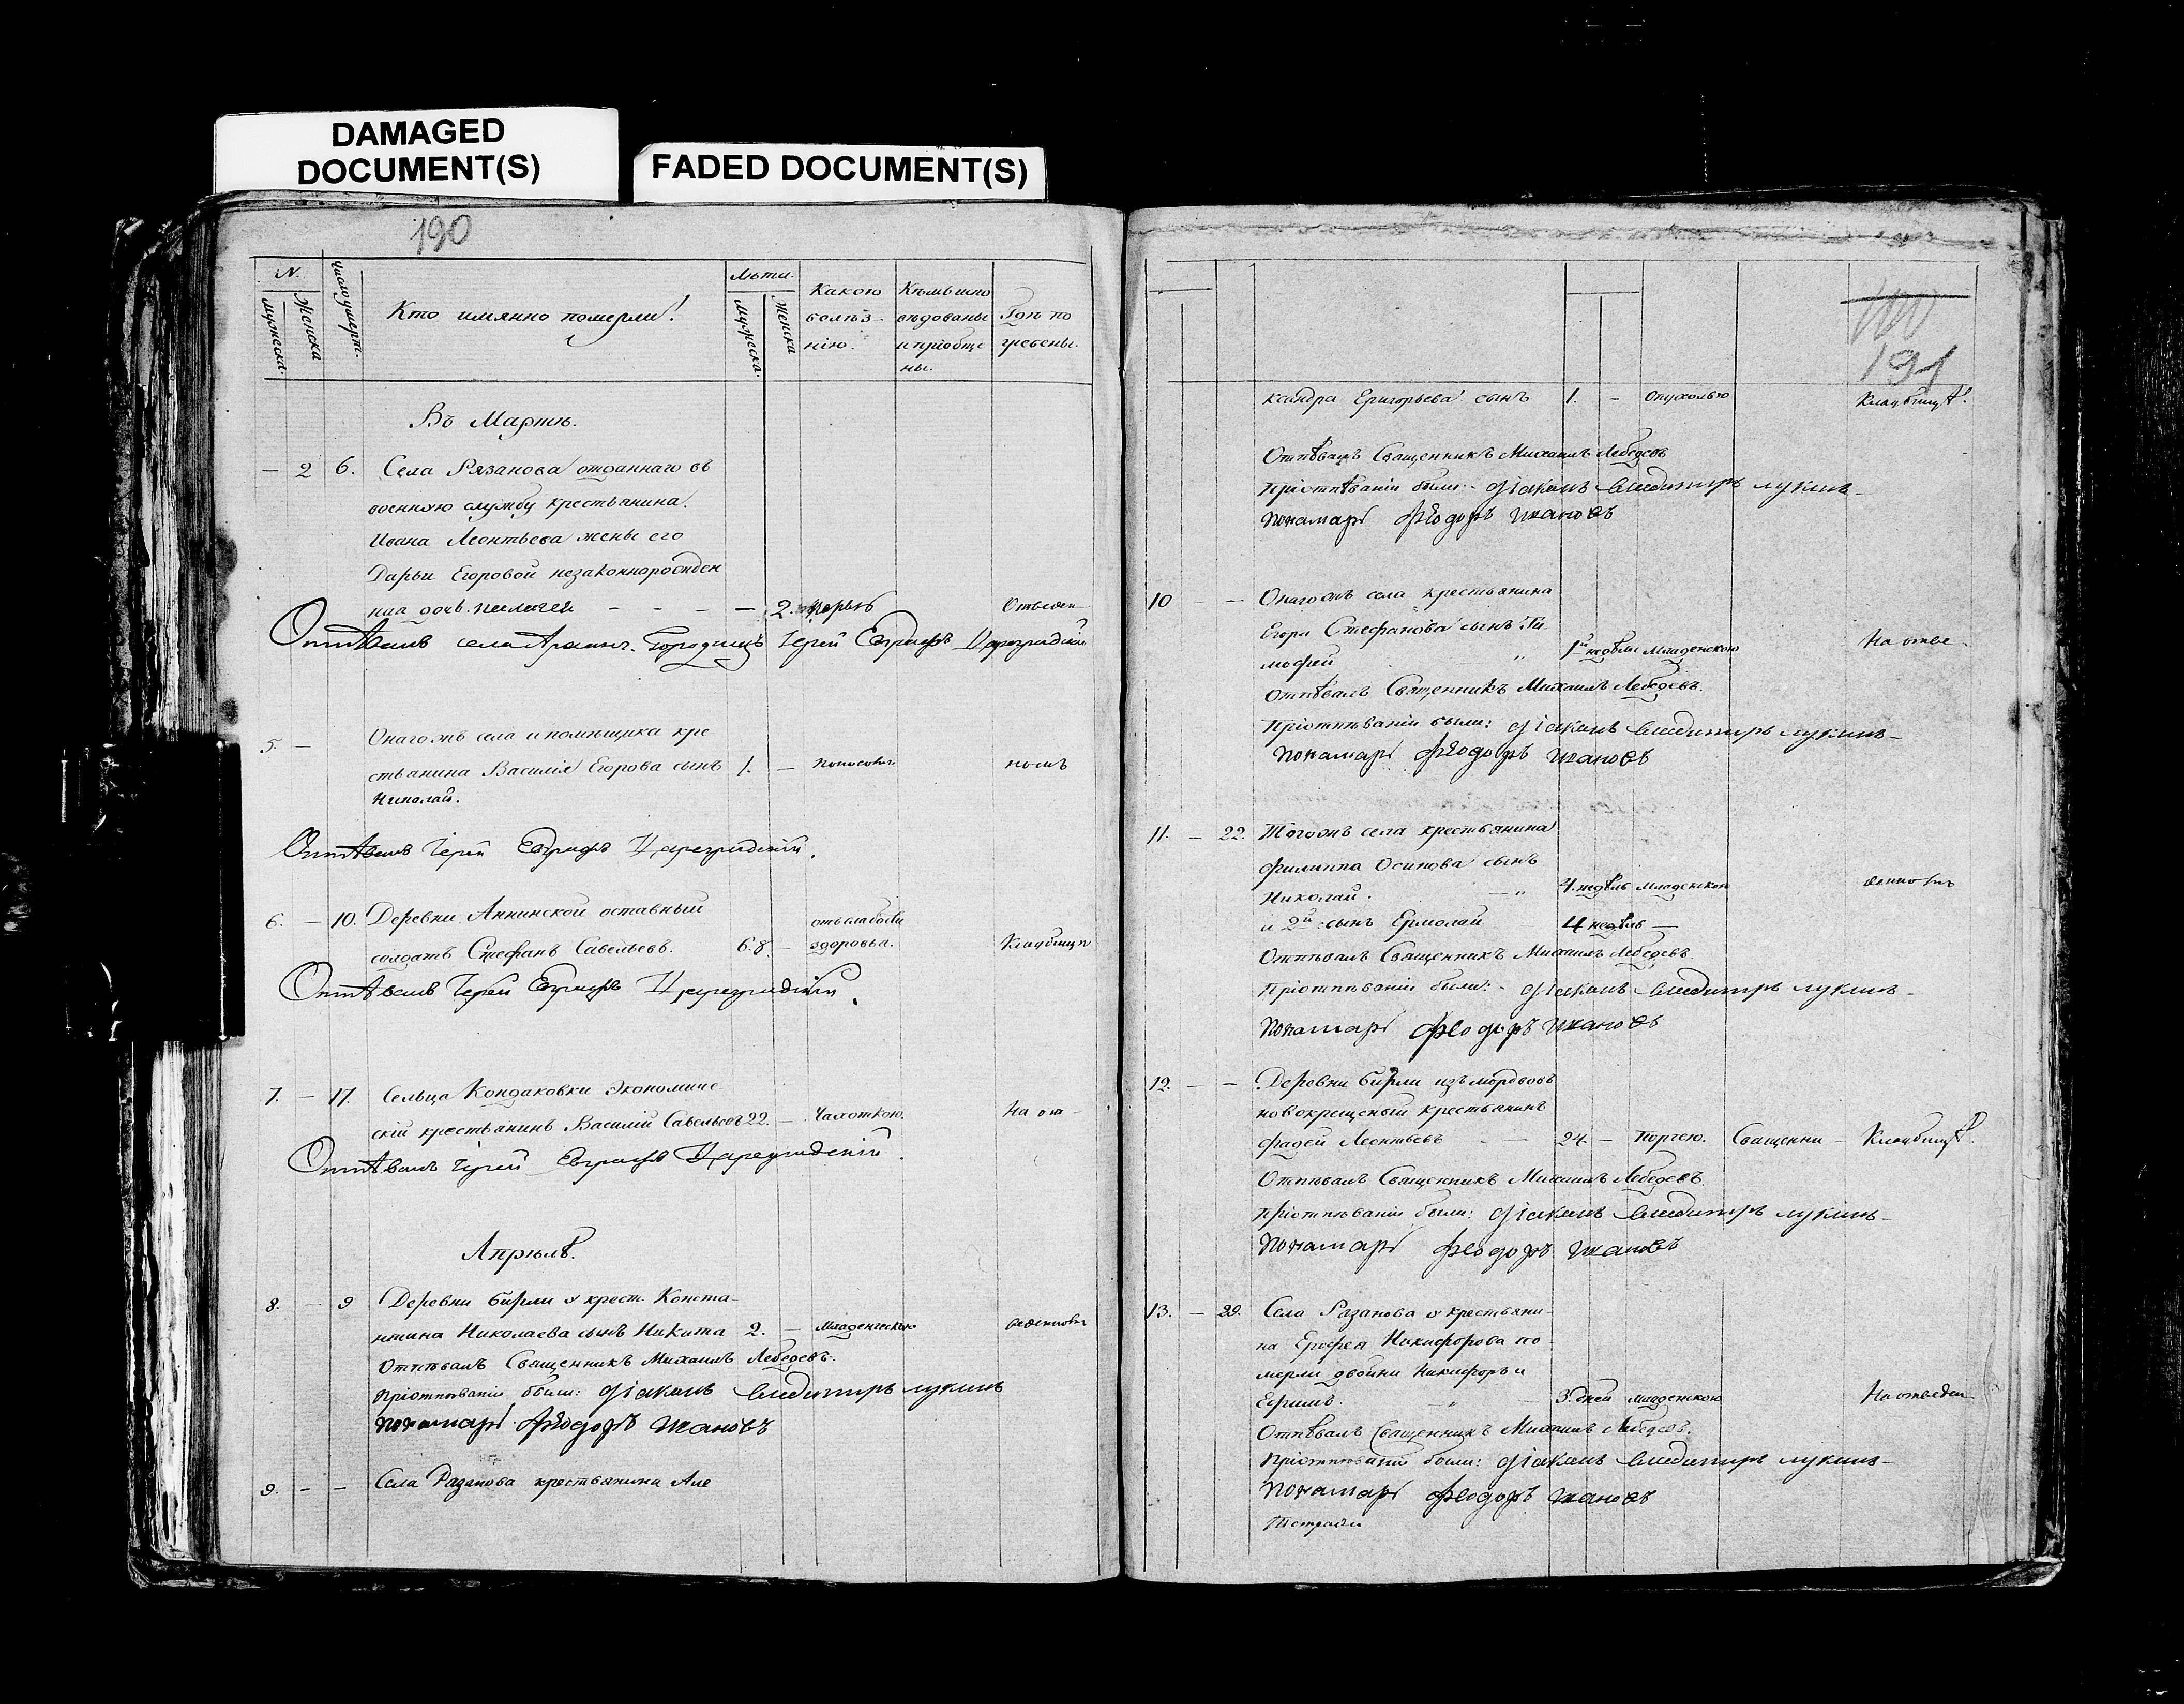 DAMAGED
DOCUMENT(S)
FADED DOCUMENT(S)
190
N.
мужеска.
Женска
число умерт.
Кто имянно померли!
Льта.
мужеска.
Женска
Какою
болѣз-
нію.
Кѣмъ испо
вѣдованы
и пріобще
ны.
Гдѣ по
гребены.
Въ Мартѣ.
– 2 6. Села Рязанова отданнаго въ
военную службу крестьянина
Ивана Леонтьева жены его
Дарьи Егоровой незаконнорожден
ная дочь – – – – 2. Отведен-
Отпѣвалъ села Городищъ Іерей Цареградскій
5. – Онагожъ села и помѣщика кре
стьянина Василія Егорова сынъ 1. – поносомъ номъ
Николай.
Отпѣвалъ Іерей Цареградскій.
6. – 10. Деревни Аннинской оставный отъ слабости
солдатъ Стефанъ Савельевъ. 68. – здоровья. Кладбищѣ
Отпѣвалъ Іерей Цареградскій.
7. – 17. Сельца Кондаковки Экономиче
скій крестьянинъ Василій Савельевъ 22. – Чахоткою. На от-
Отпѣвалъ Іерей Цареградскій.
Апрѣлѣ.
8. – 9 Деревни Бирли у крест. Конста-
нтина Николаева сынъ Никита 2. – Младенческою веденномъ
Отпѣвалъ Священникъ Михаилъ Лебедевъ.
При отпѣваніи были: Діаконъ Владимиръ Лукинъ
Пономарь Ѳеодоръ Ивановъ
9. – – Села Рязанова крестьянина Але
191
ксандра Григорьева сынъ 1. – опухолью Кладбищѣ.
Отпѣвалъ Священникъ Михаилъ Лебедевъ
При отпѣваніи были: Діаконъ Владимиръ Лукинъ
Пономарь Ѳеодоръ Ивановъ
10 – – Онагожъ села крестьянина
Егора Стефанова сынъ Ти-
мофей „ 1й недѣли Младенскою На отве-
Отпѣвалъ Священникъ Михаилъ Лебедевъ.
При отпѣваніи были: Діаконъ Владимиръ Лукинъ
Пономарь Ѳеодоръ Ивановъ
11. – 22. Тогожъ села крестьянина
Филиппа Осипова сынъ
Николай. – „ 4. недѣль Младенскою денномъ
и 2й сынъ Ермолай 4 недѣль –
Отпѣвалъ Священникъ Михаилъ Лебедевъ.
При отпѣваніи были: Діаконъ Владимиръ Лукинъ
Пономарь Ѳеодоръ Ивановъ
12. – – Деревни Бирли изъ мордовъ
новокрещеный крестьянинъ
Фадей Леонтьевъ – – 24. – Порчею. Священни- Кладбищѣ.
Отпѣвалъ Священникъ Михаилъ Лебедевъ.
При отпѣваніи были: Діаконъ Владимиръ Лукинъ
Пономарь Ѳеодоръ Ивановъ
13. – 29. Села Рязанова у крестьяни-
на Ерофея Никифорова по-
мерли двойни Никифоръ и
Ефимъ. – „ – 3. дней младенскою На отведен-
Отпѣвалъ Священникъ Михаилъ Лебедевъ.
При отпѣваніи были: Діаконъ Владимиръ Лукинъ
Пономарь Ѳеодоръ Ивановъ